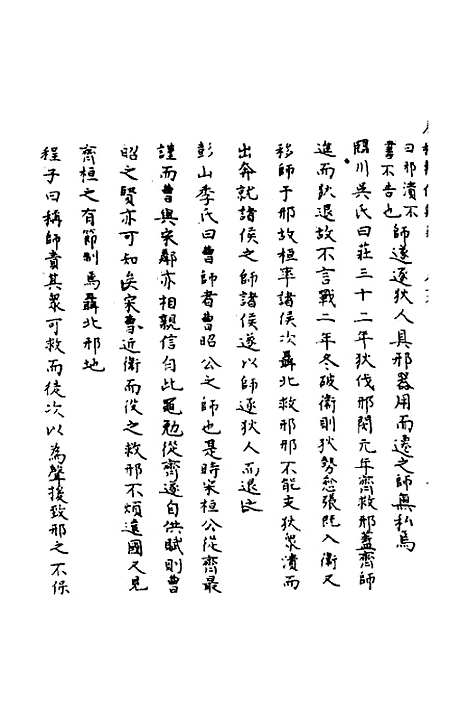 曰邢潰不
書不告也 師遂逐狄人具邢器用而遷之師無私焉
臨川吳氏曰莊三十二年狄伐邢閔元年齊救邢蓋齊師
進而狄退故不言戰二年冬破衞則狄勢愈張旣入衞又
移師于邢故桓率諸侯次聶北救邢邢不能支狄衆潰而
出奔就諸侯之師諸侯遂以師逐狄人而退之
彭山季氏曰曹師者曹昭公之師也是時宋桓公從齊最
謹而曹與宋鄰亦相親信自此黽勉從齊遂自供賦則曹
昭之賢亦可知矣宋曹近衞而役之救邢不煩遠國又見
齊桓之有節制焉聶北邢地
程子曰稱師責其衆可救而徒次以為聲援致邢之不保